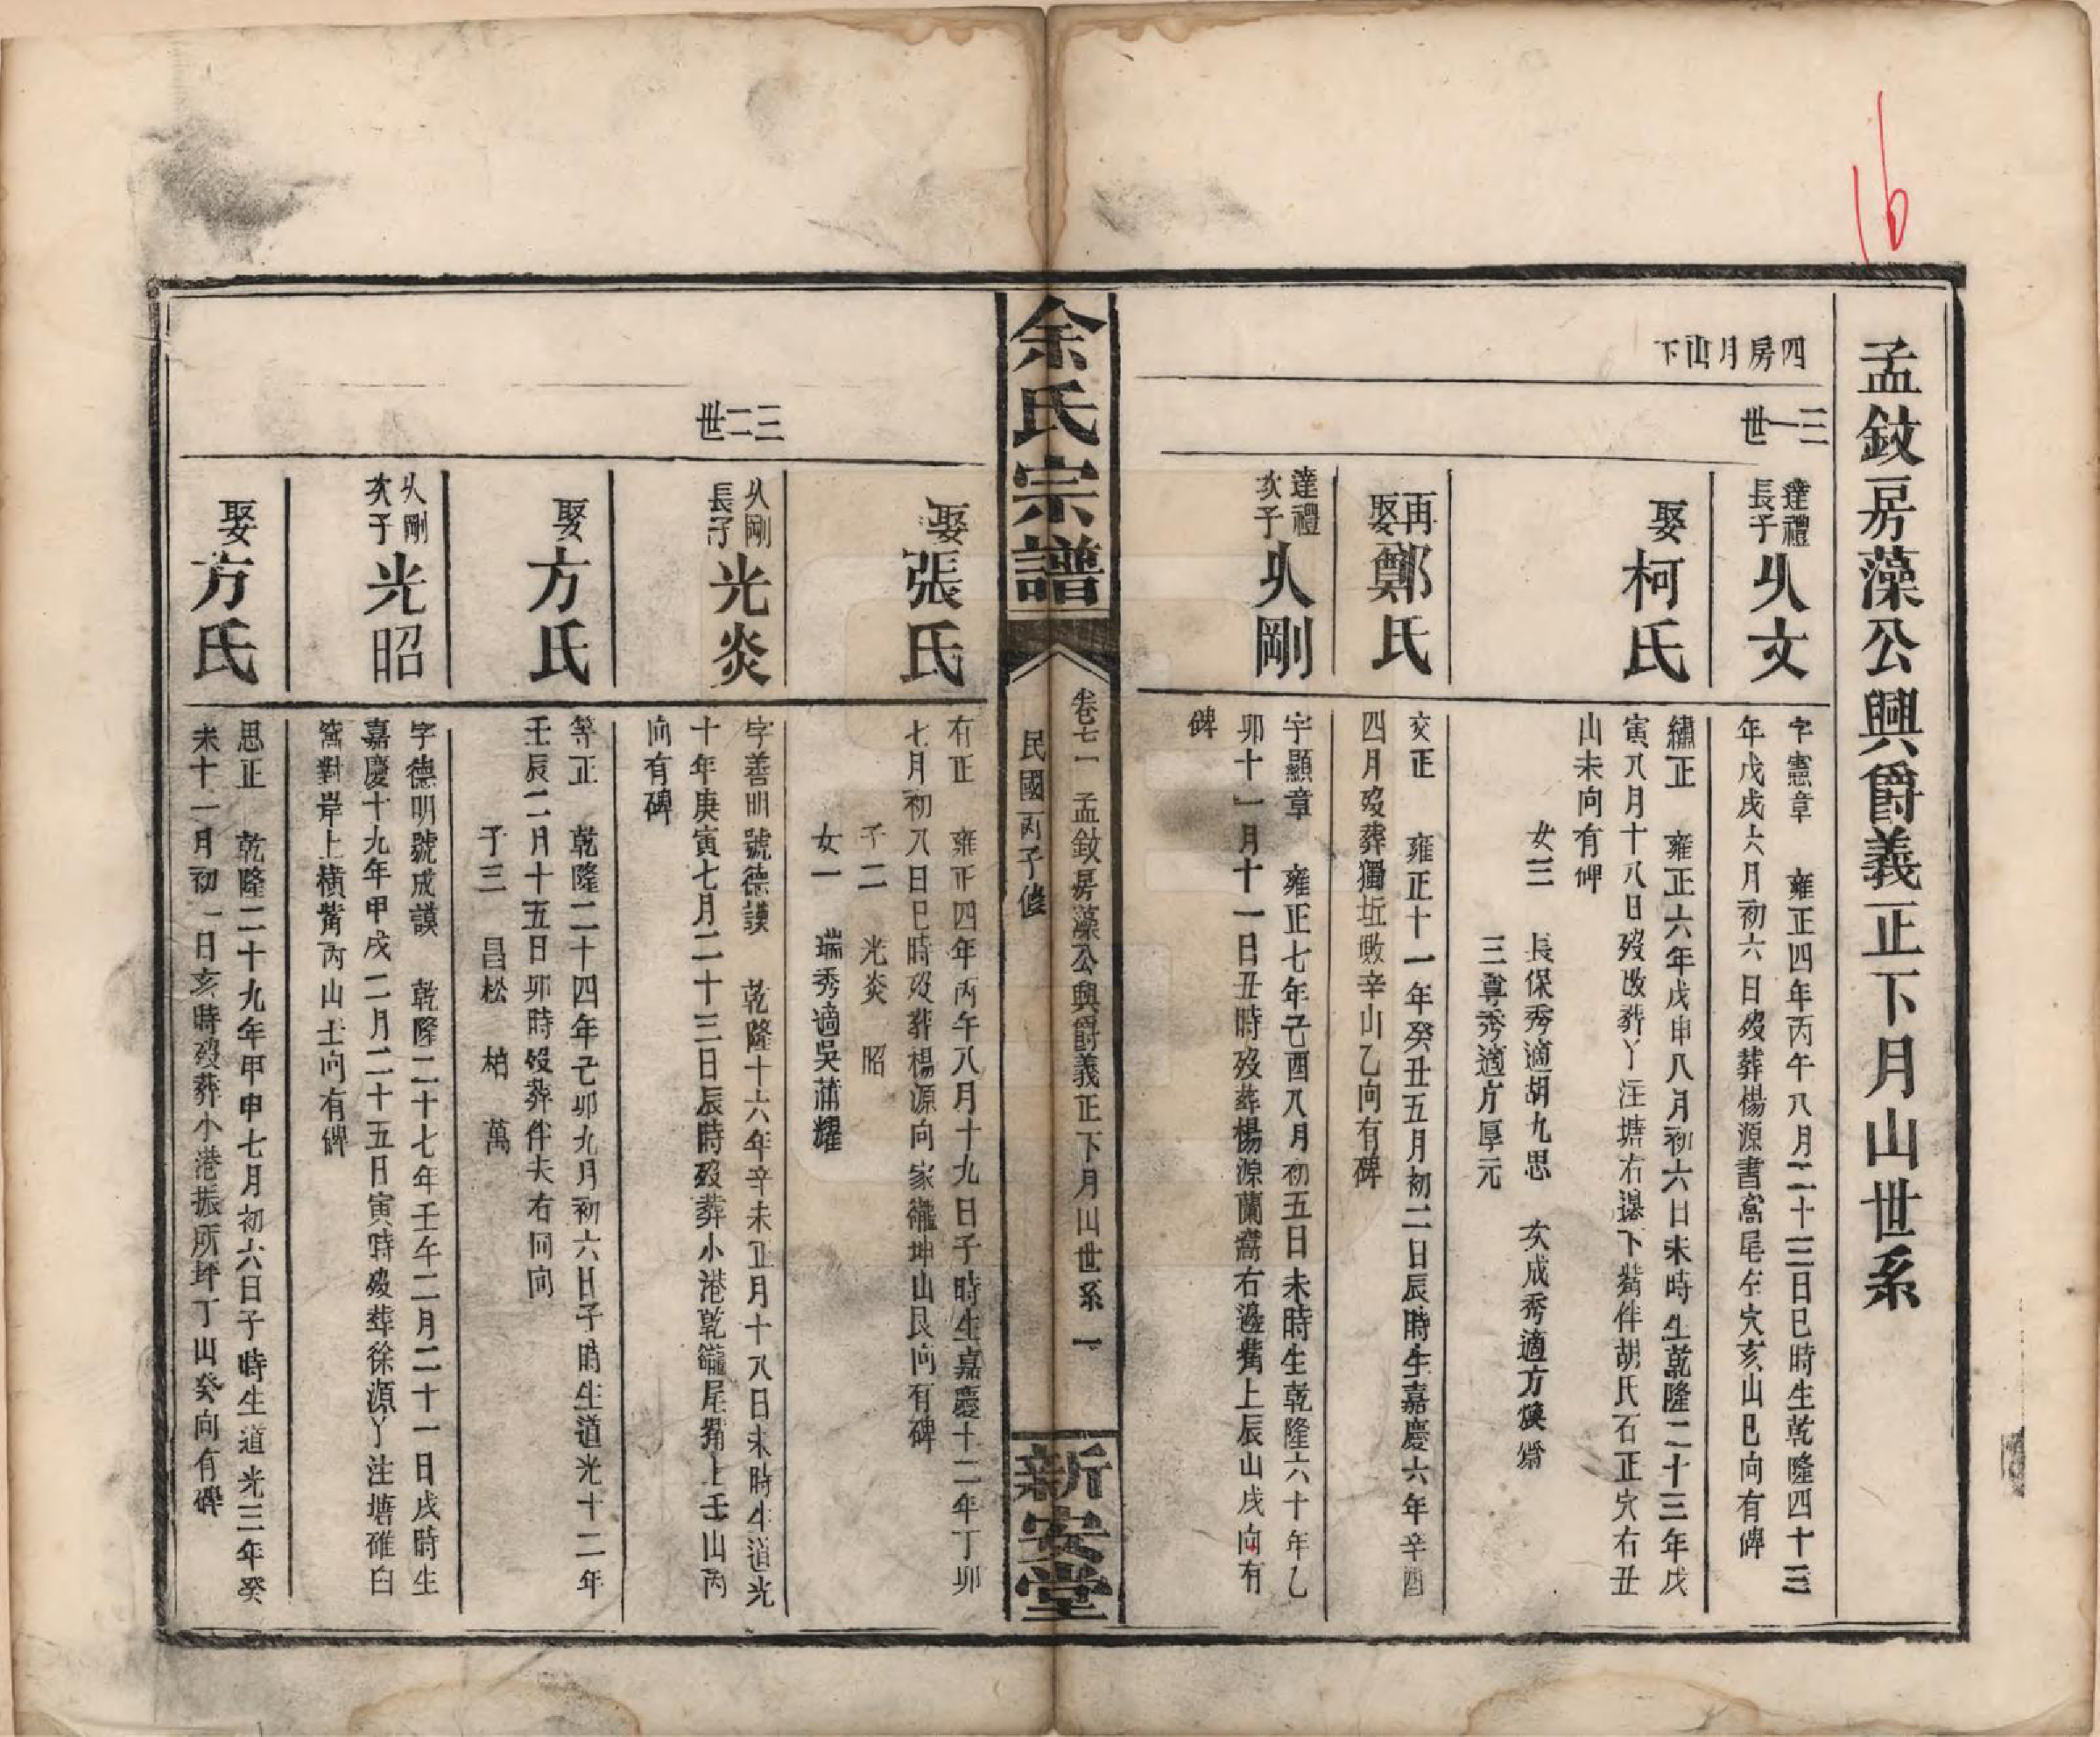 16
孟㪺房藻公興爵義正下月山世系
四房月山下
三一世
達禮
長子
乆文
字憲章　雍正四年丙午八月二十三日巳時生乾隆四十三
年戊戌六月初六日歿葬楊源書窩尾左穴亥山巳向有碑
娶
柯氏
繡正　雍正六年戊申八月初六日未時生乾隆二十三年戊
寅八月十八日歿改葬丫注塘右邊下嘴伴胡氏石正穴右丑
山未向有碑
女三　長保秀適胡九思　次成秀適方煥齋
三尊秀適方厚元
再
娶
鄭氏
交正　雍正十一年癸丑五月初二日辰時生嘉慶六年辛酉
四月歿葬獨坵墩辛山乙向有碑
達禮
次子
乆剛
字顯章　雍正七年己酉八月初五日未時生乾隆六十年乙
卯十一月十一日丑時歿葬楊源蘭窩右邊嘴上辰山戌向有
碑
余氏宗譜
卷七一　孟㪺房藻公興爵義正下月山世系　一
民國丙子修
新安堂
娶
張氏
有正　雍正四年丙午八月十九日子時生嘉慶十二年丁卯
七月初八日巳時歿葬楊源向家龍坤山艮向有碑
子二　光炎　昭
女一　瑞秀適吳蒲耀
三二世
乆剛
長子
光炎
字善明號德謨　乾隆十六年辛未正月十八日未時生道光
十年庚寅七月二十三日辰時歿葬小港乾龍尾嘴上壬山丙
向有碑
娶
方氏
等正　乾隆二十四年己卯九月初六日子時生道光十二年
壬辰二月十五日卯時歿葬伴夫右同向
子三　昌松　柏　萬
乆剛
次子
光昭
字德明號成謨　乾隆二十七年壬午二月二十一日戌時生
嘉慶十九年甲戌二月二十五日寅時歿葬徐源丫注塘碓臼
窩對岸上橫嘴丙山壬向有碑
娶
方氏
思正　乾隆二十九年甲申七月初六日子時生道光三年癸
未十一月初一日亥時歿葬小港振所坪丁山癸向有碑